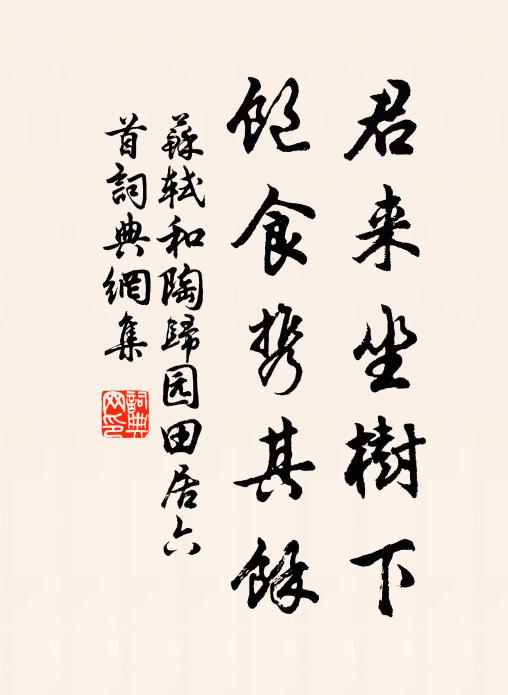 君来坐樹下
飽食携其餘
蘇軾和陶歸园田居六
首詞典網集
詞典
网印